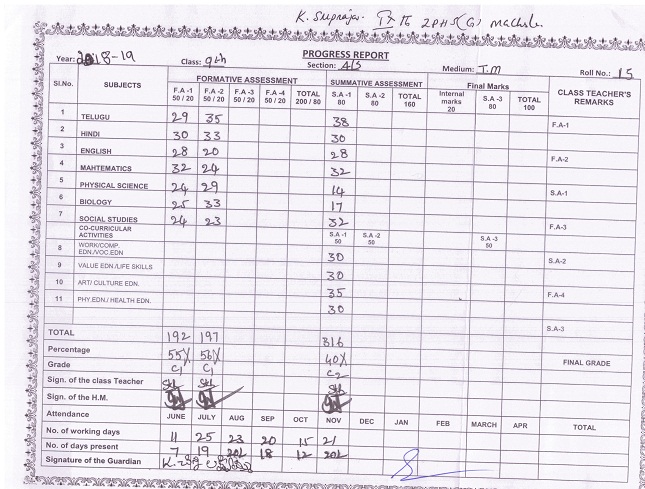 K. Supraja. IX TC ZPHS(G) machrla.
PROGRESS REPORT
Year: 2018-19 Class: 9th Section: A/S Medium: T.M Roll No.: 15
Sl.No. SUBJECTS FORMATIVE ASSESSMENT SUMMATIVE ASSESSMENT Final Marks CLASS TEACHER'S REMARKS
F.A -1 50 / 20 F.A -2 50 / 20 F.A -3 50 / 20 F.A -4 50 / 20 TOTAL 200 / 80 S.A -1 80 S.A -2 80 TOTAL 160 Internal marks 20 S.A -3 80 TOTAL 100
1 TELUGU 29 35 38 F.A-1
2 HINDI 30 33 30
3 ENGLISH 28 20 28 F.A-2
4 MAHTEMATICS 32 24 32
5 PHYSICAL SCIENCE 24 29 14 S.A-1
6 BIOLOGY 25 33 17
7 SOCIAL STUDIES 24 23 32 F.A-3
CO-CURRICULAR ACTIVITIES S.A -1 50 S.A -2 50 S.A -3 50
8 WORK/COMP. EDN./VOC.EDN 30 S.A-2
9 VALUE EDN./LIFE SKILLS 30
10 ART/ CULTURE EDN. 35 F.A-4
11 PHY.EDN./ HEALTH EDN. 30
S.A-3
TOTAL 192 197 316
Percentage 55% 56% 40% FINAL GRADE
Grade C1 C1 C2
Sign. of the class Teacher
Sign. of the H.M.
Attendance JUNE JULY AUG SEP OCT NOV DEC JAN FEB MARCH APR TOTAL
No. of working days 11 25 23 20 15 21
No. of days present 7 19 20½ 18 12 20½
Signature of the Guardian